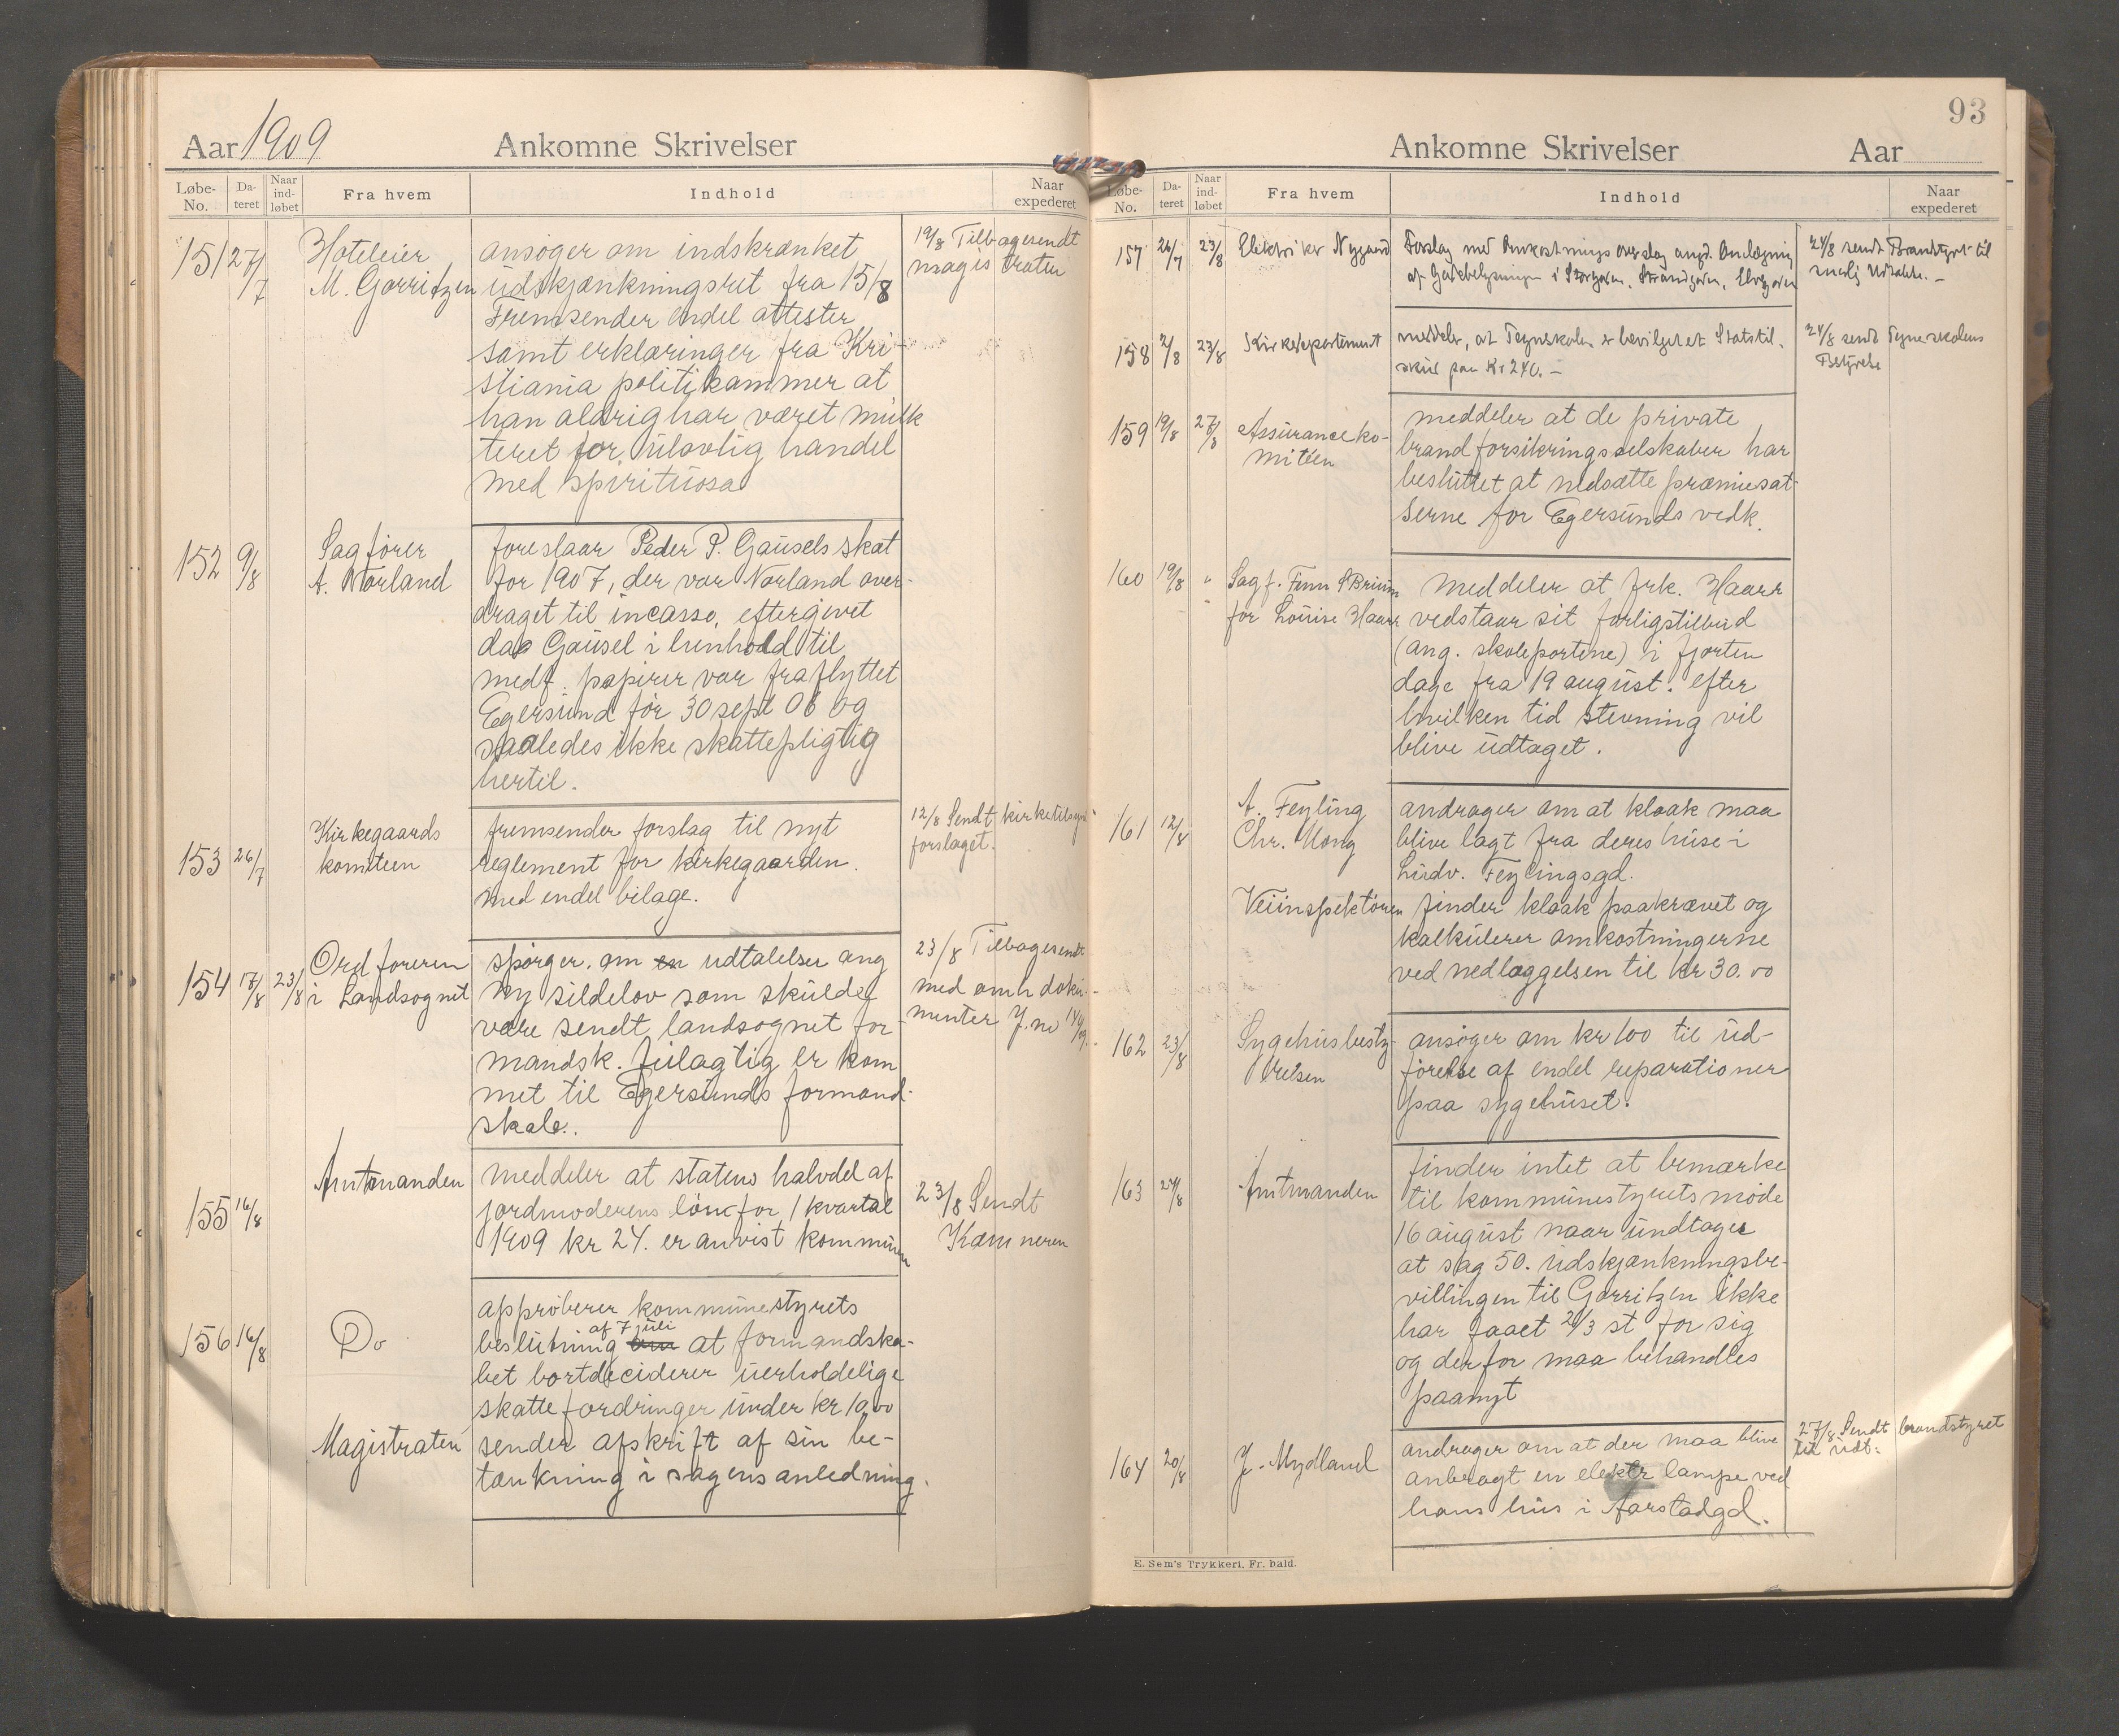 Aar 1909 Ankomne Skrivelser
Løbe-No. Da-teret Naar ind-løbet Fra hvem Indhold Naar expederet
151 27/7 Hoteleier ansøger om indskrænket 19/8 Tilbagesendt
M. Gorritzen udskjænkningsret fra 15/8 magistraten
Fremsender endel attester
samt erklæringer fra Kri-
stiania politikammer at
han aldrig har været mulk
teret for ulovlig handel
med spirituosa
152 9/8 Sagfører foreslaar Peder P. Gausels skat
A. Norland for 1907, der var Norland over-
draget til incasso, eftergivet
da Gausel i henhold til
medf. papirer var fraflyttet
Egersund før 30 sept 06 og
saaledes ikke skattepligtig
hertil.
153 26/7 Kirkegaards fremsender forslag til nyt 12/8 Sendt kirketilsyn
komiteen reglement for kirkegaarden. forslaget.
med endel bilage.
154 17/8 23/8 Ordføreren spørger om en udtalelser ang 23/8 Tilbagesendt
i Landsognet ny sildelov som skulde med omh doku-
være sendt landsognet for- menter J.no
mandsk. feilagtig er kom
met til Egersunds formand-
skab.
155 16/8 Amtmanden meddeler at statens halvdel af 23/8 Sendt
jordmoderens løn for 1 kvartal Kæmneren
1909 kr 24. er anvist kommunen
156 16/8 Do approberer kommunestyrets
af 7 juli
beslutning om at formandska-
bet bortdeciderer uerholdelige
skattefordringer under kr 10,00
Magistraten sender afskrift af sin be-
tænkning i sagens anledning.
93
Ankomne Skrivelser Aar
Løbe-No. Da-teret Naar ind-løbet Fra hvem Indhold Naar expederet
157 26/7 23/8 Elektriker Nygaard Forslag med Omkostnings overslag angd. Anlægning 24/8 sendt Brandstyret til
af Gadebelysningen i Storgaden, Strandgaden, Elvegaden
158 2/8 23/8 Kirkedepartement meddeler, at Tegneskolen er bevilget et Statstil- 24/8 sendt Tegneskolens
skud paa Kr 240.- Bestyrelse
159 19/8 27/8 Assuranceko- meddeler at de private
miteen brandforsikringsselskaber har
besluttet at nedsætte præmiesat-
serne for Egersunds vedk.
160 19/8 " Sagf. Fenn Bruun meddeler at frk. Haarr
for Louise Haarr vedstaar sit forligstilbud
(ang. skoleportene) i fjorten
dage fra 19 august. efter
hvilken tid stevning vil
blive udtaget.
161 12/8 A. Feyling andrager om at kloak maa
Chr. Mong blive lagt fra deres huse i
Ludv. Feylingsgd.
Veiinspektøren finder kloak paakrævet og
kalkulerer omkostningerne
ved nedlæggelsen til kr 30.00
162 23/8 Sygehusbesty- ansøger om kr 100 til ud-
relsen førelse af endel reparationer
paa sygehuset.
163 24/8 Amtmanden finder intet at bemærke
til kommunestyrets møde
16 august naar undtages
at sag 50. udskjænkningsbe-
villingen til Gorritzen ikke
har faaet 2/3 st for sig
og derfor maa behandles
paanyt
164 20/8 J. Mydland andrager om at der maa blive 27/8 Sendt brandstyret
anbragt en elektr lampe ved til udt.
hans hus i Aarstadgd.
E. Sem's Trykkeri, Fr. hald.